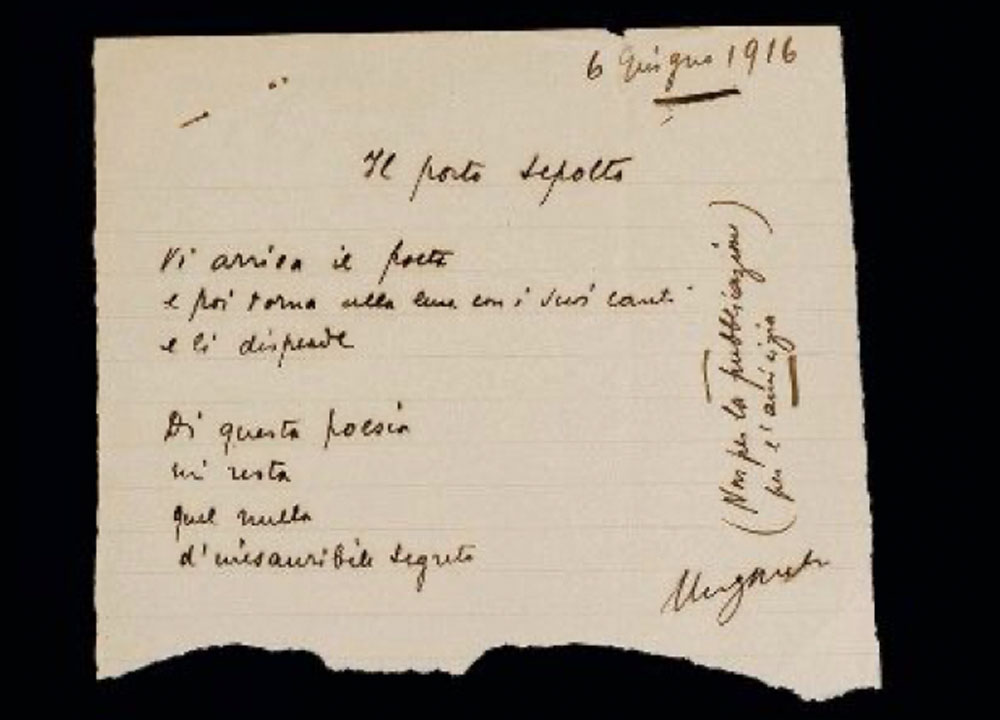 6 Giugno 1916
Il porto sepolto
Vi arriva il poeta
e poi torna alla luce con i suoi canti
e li disperde
Di questa poesia
mi resta
quel nulla
d'inesauribile segreto
(Non per la pubblicazione)
(per l'amicizia
Ungaretti